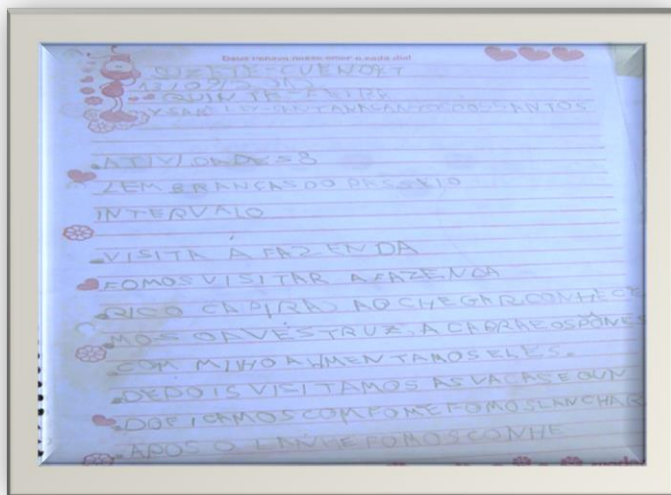 Deus renova nosso amor a cada dia!
SUZETE-CUENDET
13/09/201
QUINTE-FEIRA
ATIVIDADES
LEMBRANÇAS DO PASSEIO
INTERVALO
VISITA Á FAZENDA
FOMOS VISITAR A FAZENDA
RICO CAPIRA, AO CHEGAR CONHECE
MOS O AVESTRUZ, A CABRA E OS PÔNES
COM MILHO ALIMENTAMOS ELES.
DEPOIS VISITAMOS AS VACAS E QUN
DO FICAMOS COM FOME FOMOS LANCHAR
APOS O LANHE FOMOS CONHE